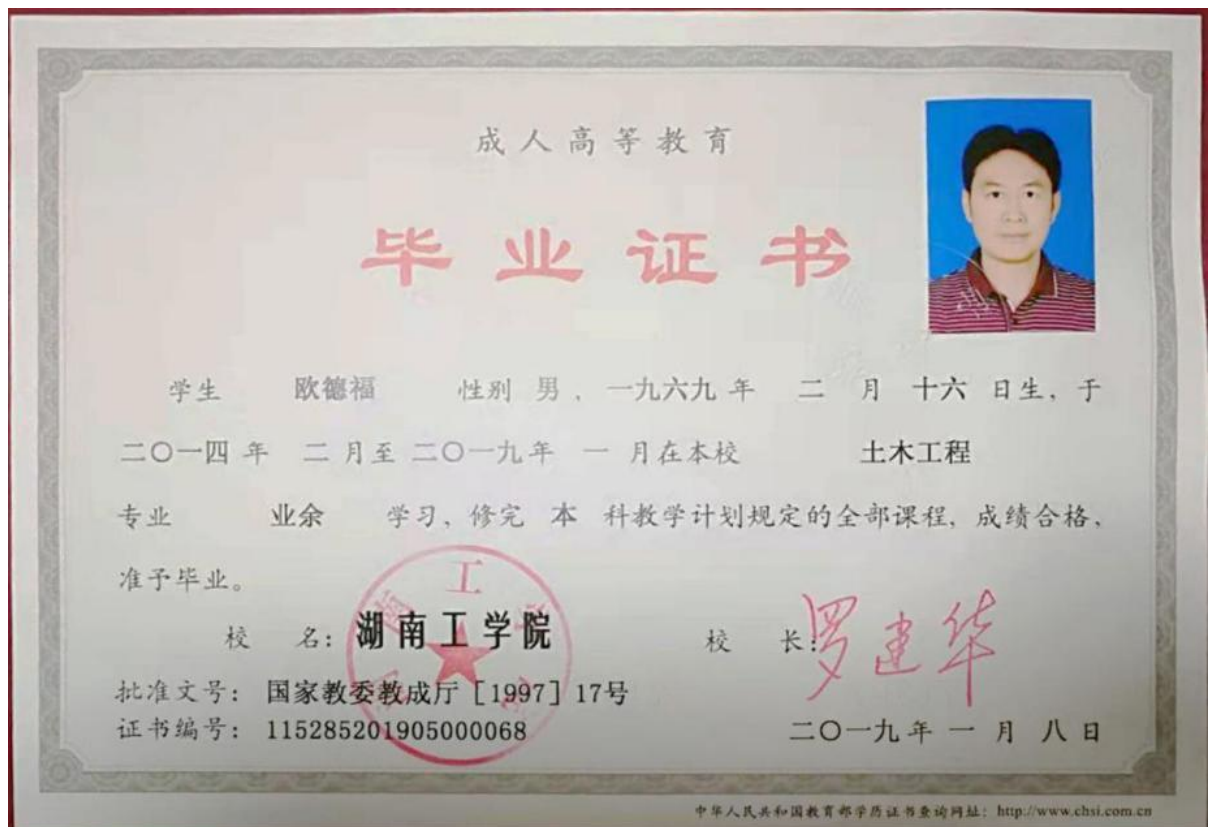 成人高等教育
毕业证书
学生 欧德福 性别 男、一九六九年 二 月 十六 日生，于
二〇一四年 二月至二〇一九年 一 月在本校 土木工程
专业 业余 学习、修完 本 科教学计划规定的全部课程，成绩合格，
准予毕业。
校 名：湖南工学院 校 长：罗建华
批准文号：国家教委教成厅［1997］17号
证书编号：115285201905000068 二〇一九年 一 月 八 日
中华人民共和国教育部学历证书查询网址：http://www.chsi.com.cn